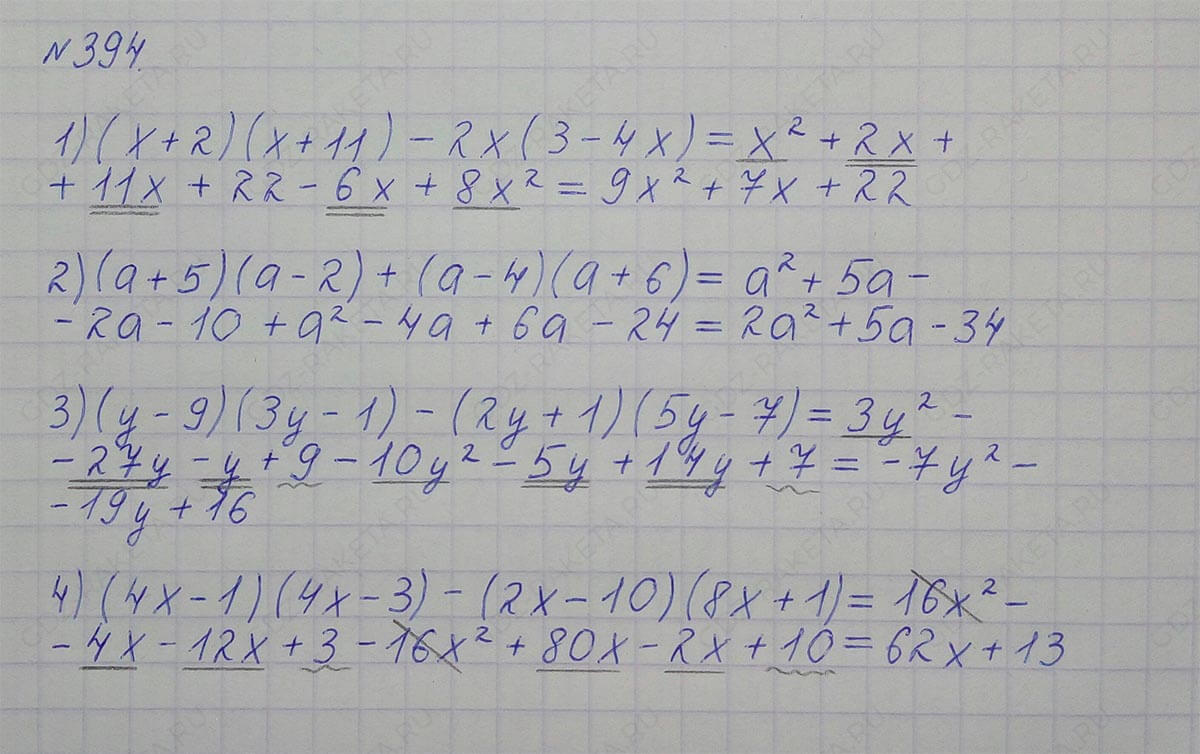 №394.
1) (x+2)(x+11) - 2x(3-4x) = x² + 2x +
+ 11x + 22 - 6x + 8x² = 9x² + 7x + 22
2) (a+5)(a-2) + (a-4)(a+6) = a² + 5a -
- 2a - 10 + a² - 4a + 6a - 24 = 2a² + 5a - 34
3) (y-9)(3y-1) - (2y+1)(5y-7) = 3y² -
- 27y - y + 9 - 10y² - 5y + 14y + 7 = -7y² -
- 19y + 16
4) (4x-1)(4x-3) - (2x-10)(8x+1) = 16x² -
- 4x - 12x + 3 - 16x² + 80x - 2x + 10 = 62x + 13